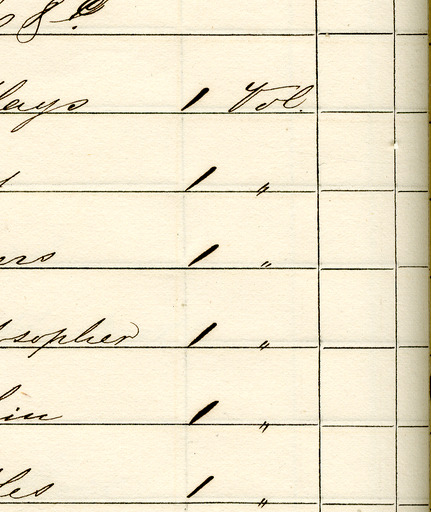 8º
lays 1 Vol.
1 "
ers 1 "
sopher 1 "
lin 1 "
les 1 "